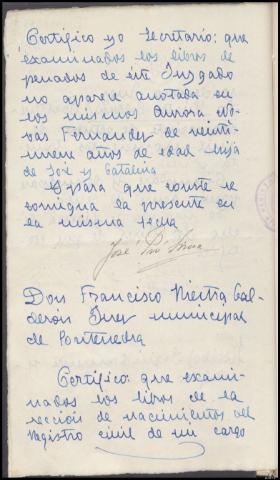 Certifico yo Secretario: que
examinados los libros de
penados de este Juzgado
no aparece anotada en
los mismos Aurora No-
vás Fernandez de veinti-
nueve años de edad hija
de José y Catalina
Y para que conste se
consigna la presente en
la misma fecha
José
Don Francisco Nieitía Cal-
derón Juez municipal
de Pontevedra
Certifico: que exami-
nados los libros de la
sección de nacimientos del
registro civil de mi cargo